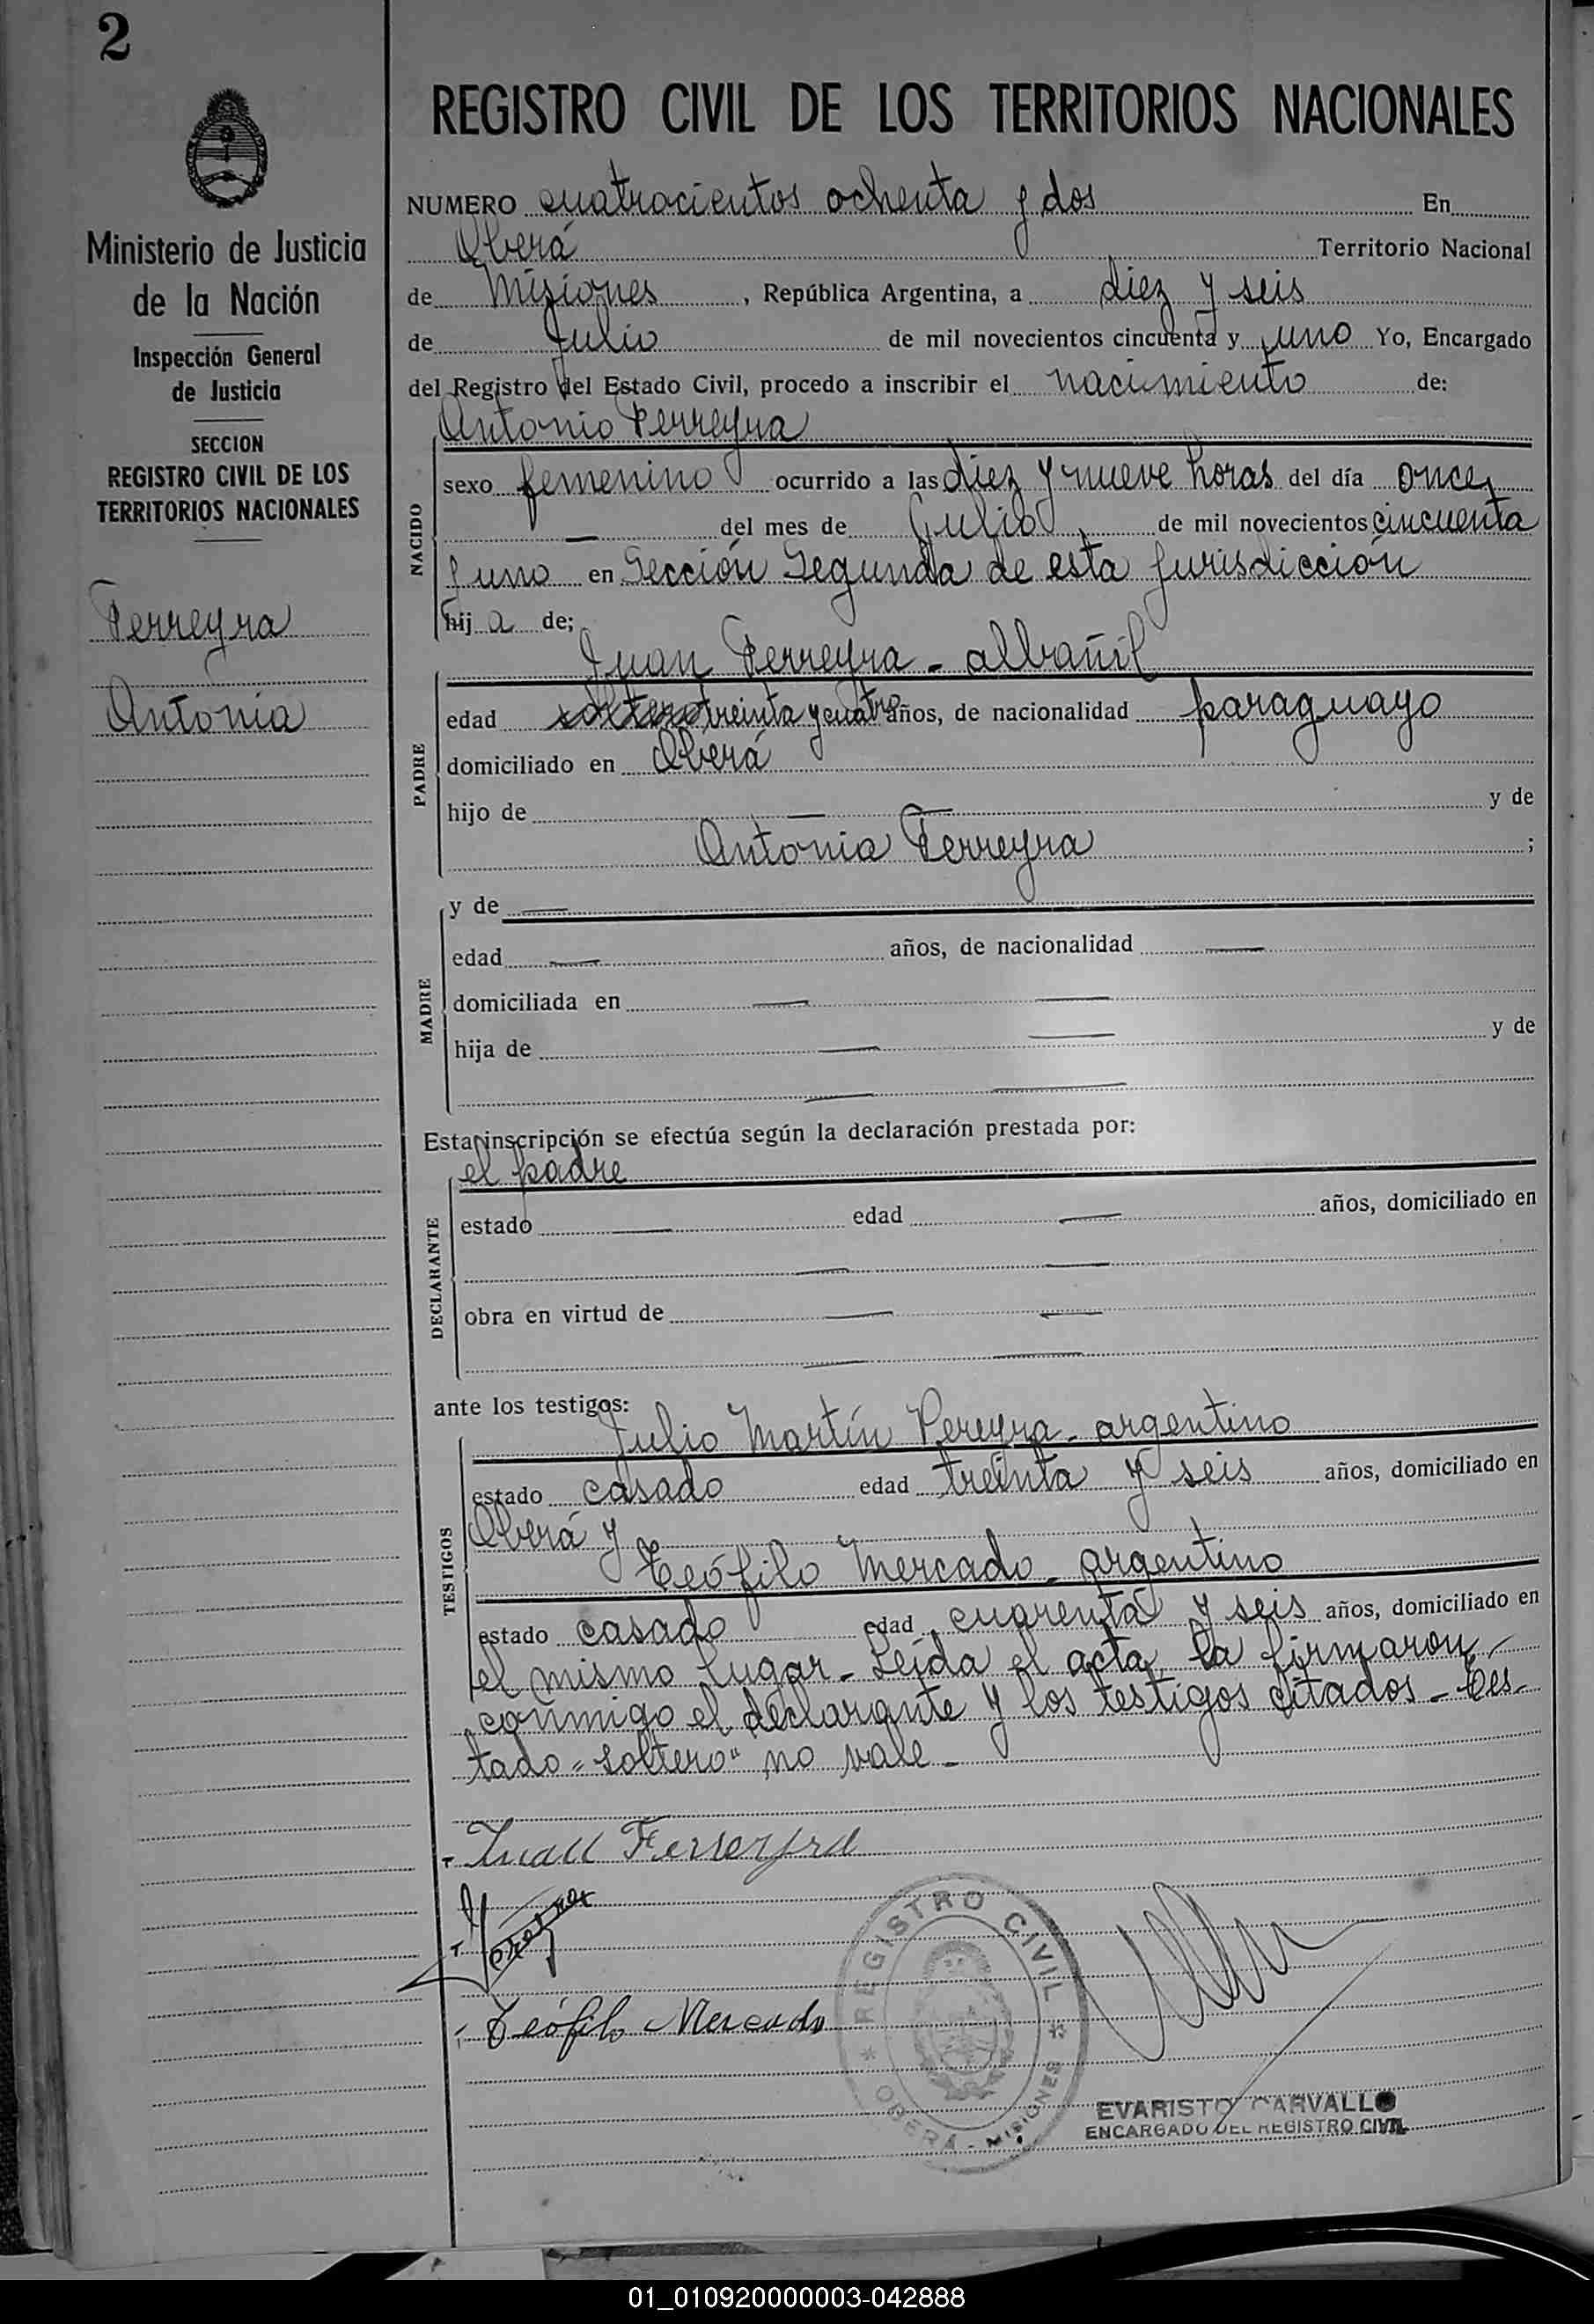 2
Ministerio de Justicia
de la Nación
Inspección General
de Justicia
SECCION
REGISTRO CIVIL DE LOS
TERRITORIOS NACIONALES
Ferreyra
Antonia
REGISTRO CIVIL DE LOS TERRITORIOS NACIONALES
NUMERO cuatrocientos ochenta y dos En
Oberá Territorio Nacional
de Misiones, República Argentina, a diez y seis
de Julio de mil novecientos cincuenta y uno Yo, Encargado
del Registro del Estado Civil, procedo a inscribir el nacimiento de:
Antonio Ferreyra
NACIDO
sexo femenino ocurrido a las diez y nueve horas del día once
— del mes de Julio de mil novecientos cincuenta
y uno en Sección Segunda de esta Jurisdicción
hij a de;
Juan Ferreyra - albañil
PADRE
edad soltero treinta y cuatro años, de nacionalidad paraguayo
domiciliado en Oberá
hijo de — y de
Antonia Ferreyra ;
MADRE
y de —
edad — años, de nacionalidad —
domiciliada en — —
hija de — — y de
— —
Esta inscripción se efectúa según la declaración prestada por:
el padre
DECLARANTE
estado — edad — años, domiciliado en
— —
obra en virtud de — —
— —
ante los testigos:
Julio Martín Pereyra - argentino
TESTIGOS
estado casado edad treinta y seis años, domiciliado en
Oberá y
Teófilo Mercado - argentino
estado casado edad cuarenta y seis años, domiciliado en
el mismo lugar - Leída el acta, la firmaron
conmigo el declarante y los testigos citados - Tes-
tado "soltero" no vale -
Juan Ferreyra
Teófilo Mercado
REGISTRO CIVIL
OBERÁ - MISIONES
EVARISTO CARVALLO
ENCARGADO DEL REGISTRO CIVIL
01_010920000003-042888